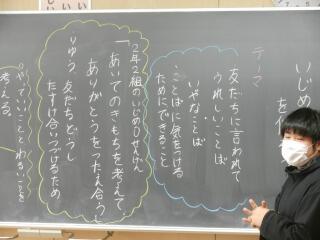 いじめ
を
テーマ
友だちに言われて
うれしいことば
いやなことば
・ことばに気をつける
ためにできること
2年2組のいじめ0せんげん
「あいてのきもちを考えて
ありがとうをつたえ合う」
りゆう、友だちどうし
たすけ合いつづけるため
いいこととわるいことを
考える。